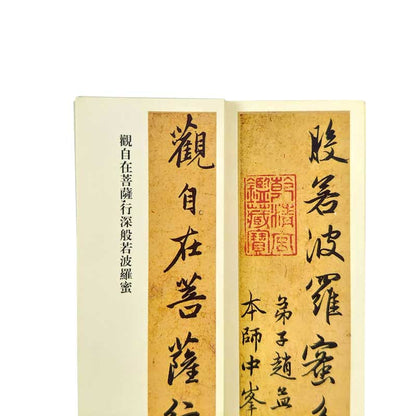 般若波羅蜜
乾清宮
鑑藏寶
弟子趙孟
本師中峯
觀自在菩薩行
觀自在菩薩行深般若波羅蜜